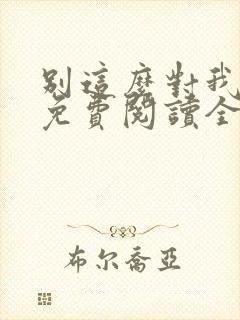 別這麼對我
免費閱讀全
布尔喬亞